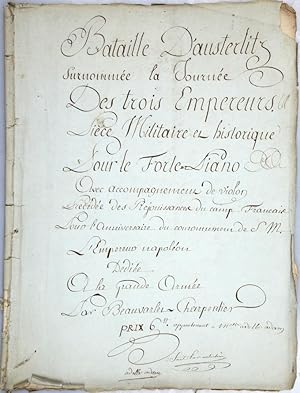 Bataille D'austerlitz
surnommée la Journée
Des trois Empereurs
Pièce Militaire et historique
Pour le Forte-Piano
Avec accompagnement de violon
Précédée des Réjouissances du camp Francais
Pour l'Anniversaire du couronnement de S. M.
L'Empereur napoléon
Dédiée
A la grande Armée
Par Beauvarlet-Charpentier
PRIX 6 appartenant a